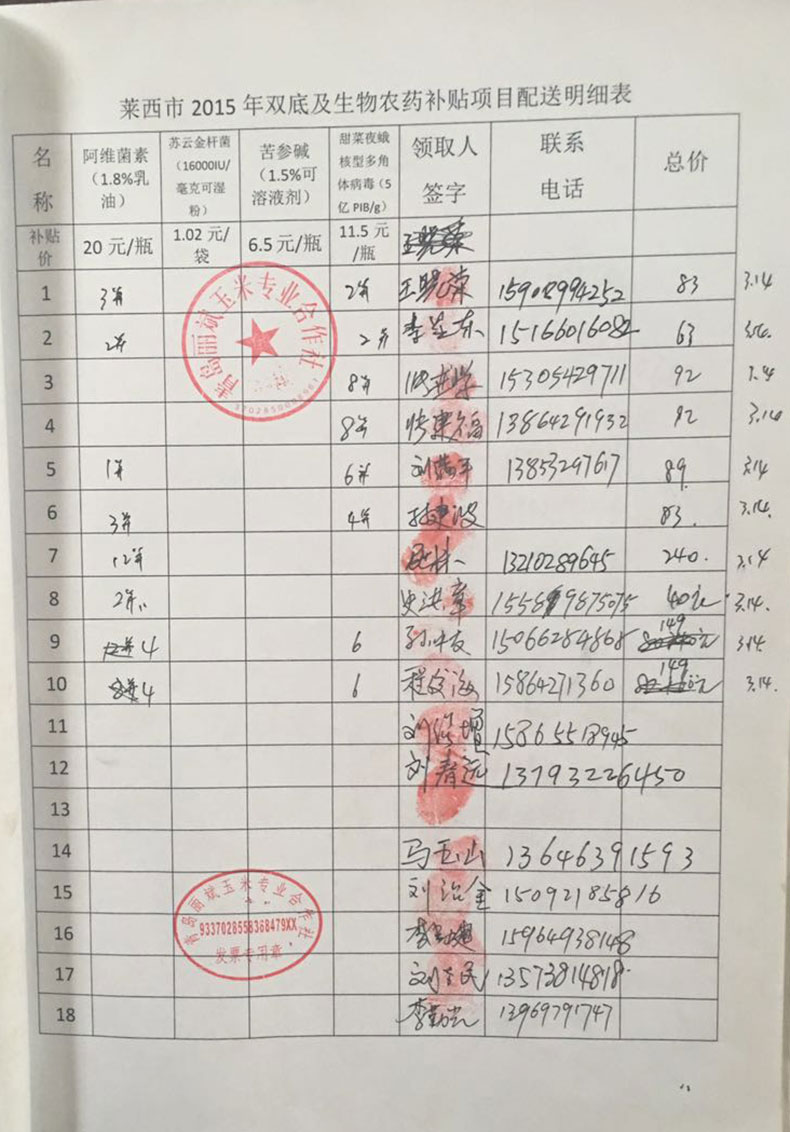 莱西市 2015 年双底及生物农药补贴项目配送明细表
名称 阿维菌素（1.8%乳油） 苏云金杆菌（16000IU/毫克可湿粉） 苦参碱（1.5%可溶液剂） 甜菜夜蛾核型多角体病毒（5亿 PIB/g） 领取人签字 联系电话 总价
补贴价 20 元/瓶 1.02 元/袋 6.5 元/瓶 11.5 元/瓶
1 3瓶 2瓶 王晓荣 15908994252 83 3.14
2 2瓶 2瓶 15166016082 63 3.14.
3 8瓶 15305429711 92 3.14
4 8瓶 13864291932 92 3.14
5 1瓶 6瓶 刘 13853297617 89. 3.14
6 3瓶 4瓶 83. 3.14.
7 12瓶 13210289645 240. 3.14
8 2瓶 史洪章 40元 3.14.
9 4 6 15066284868 149 3.14.
10 4 6 15864271360 149 3.14.
11 刘 15865518945
12 刘春远 13793226450
13
14 马玉山 13646391593
15 刘治金 15092185816
16 李 15964938148
17 刘 民 13573814818
18 李 13969791747
青岛丽斌玉米专业合作社
青岛丽斌玉米专业合作社
9337028558368479XX
发票专用章